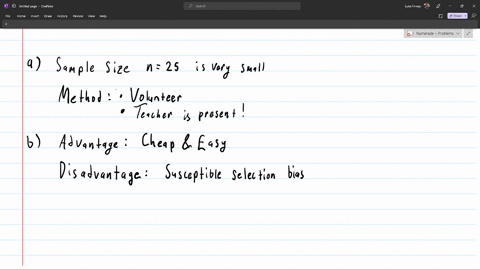 Untitled page - OneNote
Search
File Home Insert Draw History Review View Help
Numerade - Problems
a) Sample Size n=25 is very small
Method: • Volunteer
• Teacher is present!
b) Advantage: Cheap & Easy
Disadvantage: Susceptible selection bias